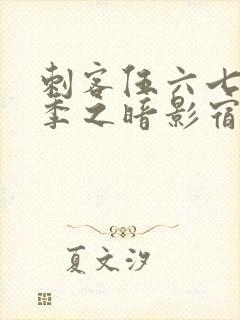 刺客伍六七
季之暗影宿
夏文汐